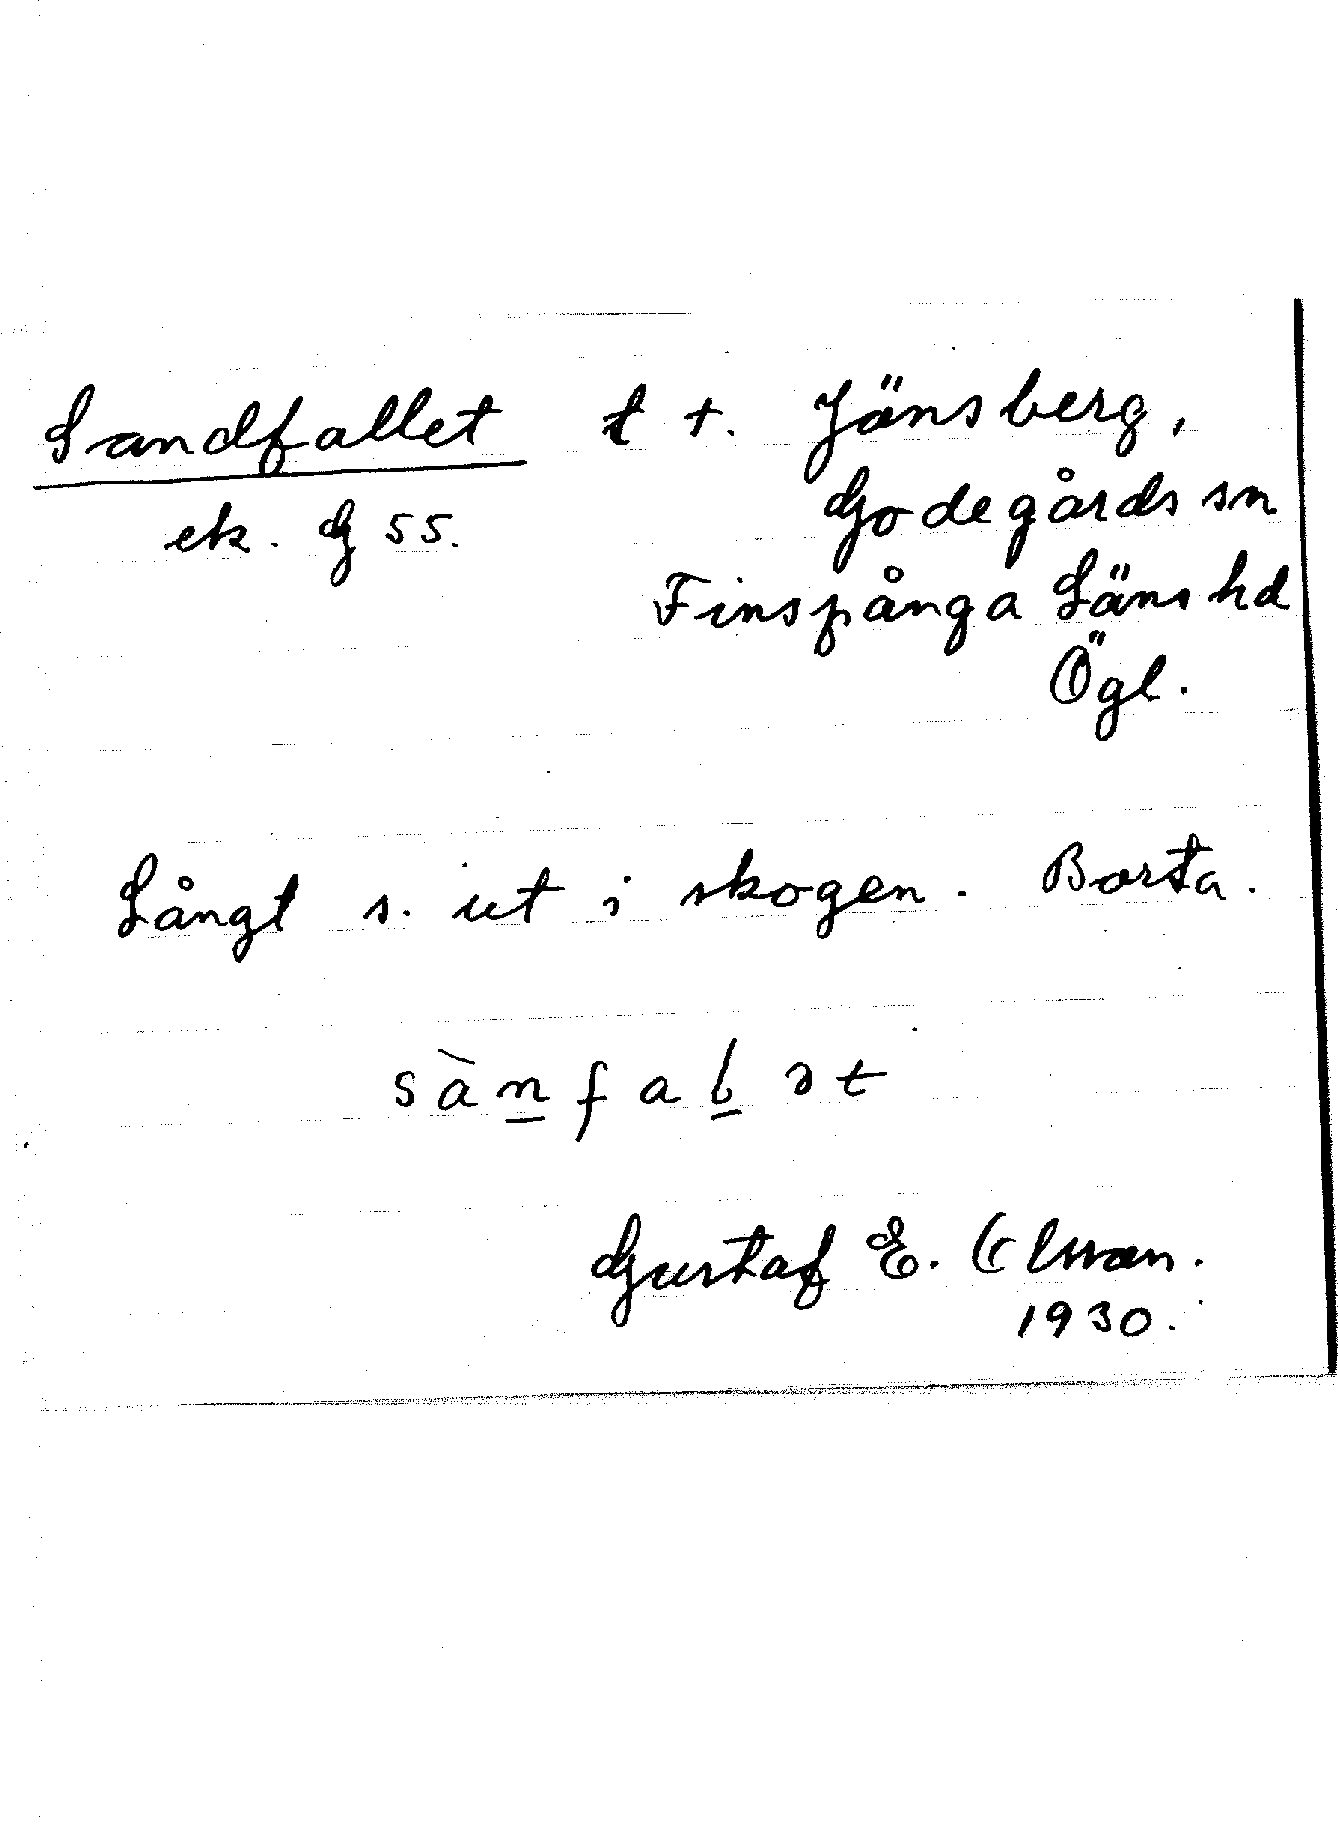 Sandfallet t +. Jänsberg,
ek. G 55. Godegårds sn
Finspånga Läns hd
Ögl.
Långt s. ut i skogen. Borta.
sànfalət
Gustaf E. Elman.
1930.